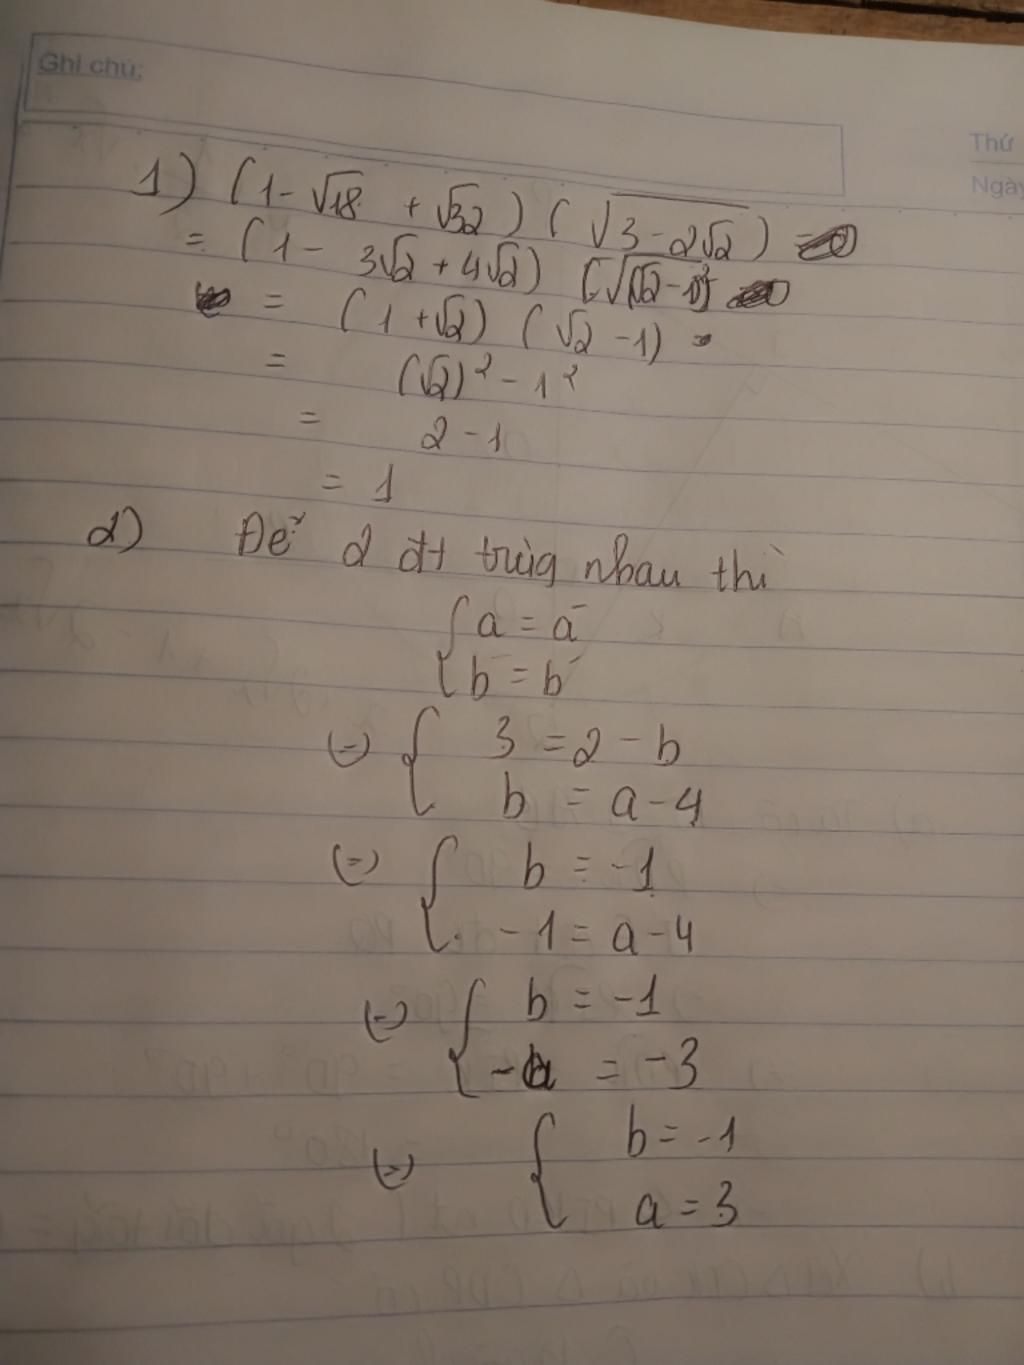 Ghi chú:
Thứ
Ngày
1) (1 - √18 + √32) (√(3 - 2√2))
= (1 - 3√2 + 4√2) (√(√2 - 1)²)
= (1 + √2) (√2 - 1)
= (√2)² - 1²
= 2 - 1
= 1
2) Để 2 đt trùg nhau thì
{ a = a'
b = b'
(=) { 3 = 2 - b
b = a - 4
(=) { b = -1
-1 = a - 4
(=) { b = -1
-a = -3
(=) { b = -1
a = 3